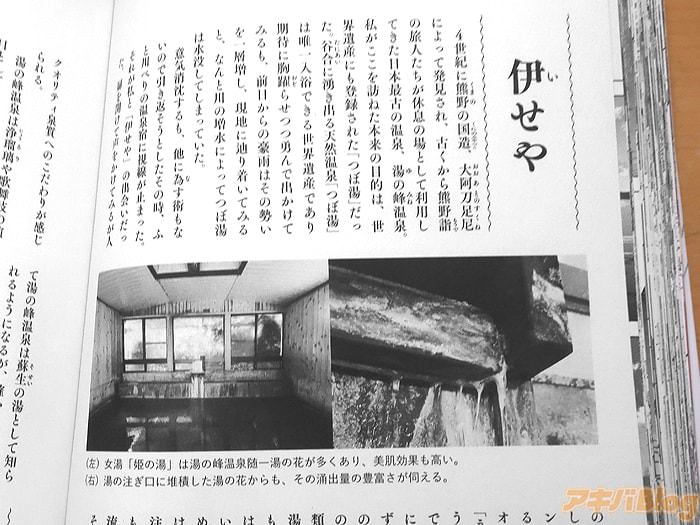 伊せや
4世紀に熊野の国造、大阿刀足尼
によって発見され、古くから熊野詣
の旅人たちが休息の場として利用し
てきた日本最古の温泉、湯の峰温泉。
私がここを訪ねた本来の目的は、世
界遺産にも登録された「つぼ湯」だっ
た。谷合に湧き出る天然温泉「つぼ湯」
は唯一入浴できる世界遺産であり
期待に胸躍らせつつ勇んで出かけて
みるも、前日からの豪雨はその勢い
を一層増し、現地に辿り着いてみる
と、なんと川の増水によってつぼ湯
は水没してしまっていた。
意気消沈するも、他に為す術もな
いので引き返そうとしたその時、ふ
と川べりの温泉宿に視線が止まった。
それが私と「伊せや」の出会いだっ
た。扉を開けて声をかけてみるが人
クオリティ泉質へのこだわりが感じ
られる。
湯の峰温泉は浄瑠璃や歌舞伎の演
て湯の峰温泉は蘇生の湯として知ら
れるようになるが、確か
(左) 女湯「姫の湯」は湯の峰温泉随一湯の花が多くあり、美肌効果も高い。
(右) 湯の注ぎ口に堆積した湯の花からも、その涌出量の豊富さが伺える。
アキバBlog